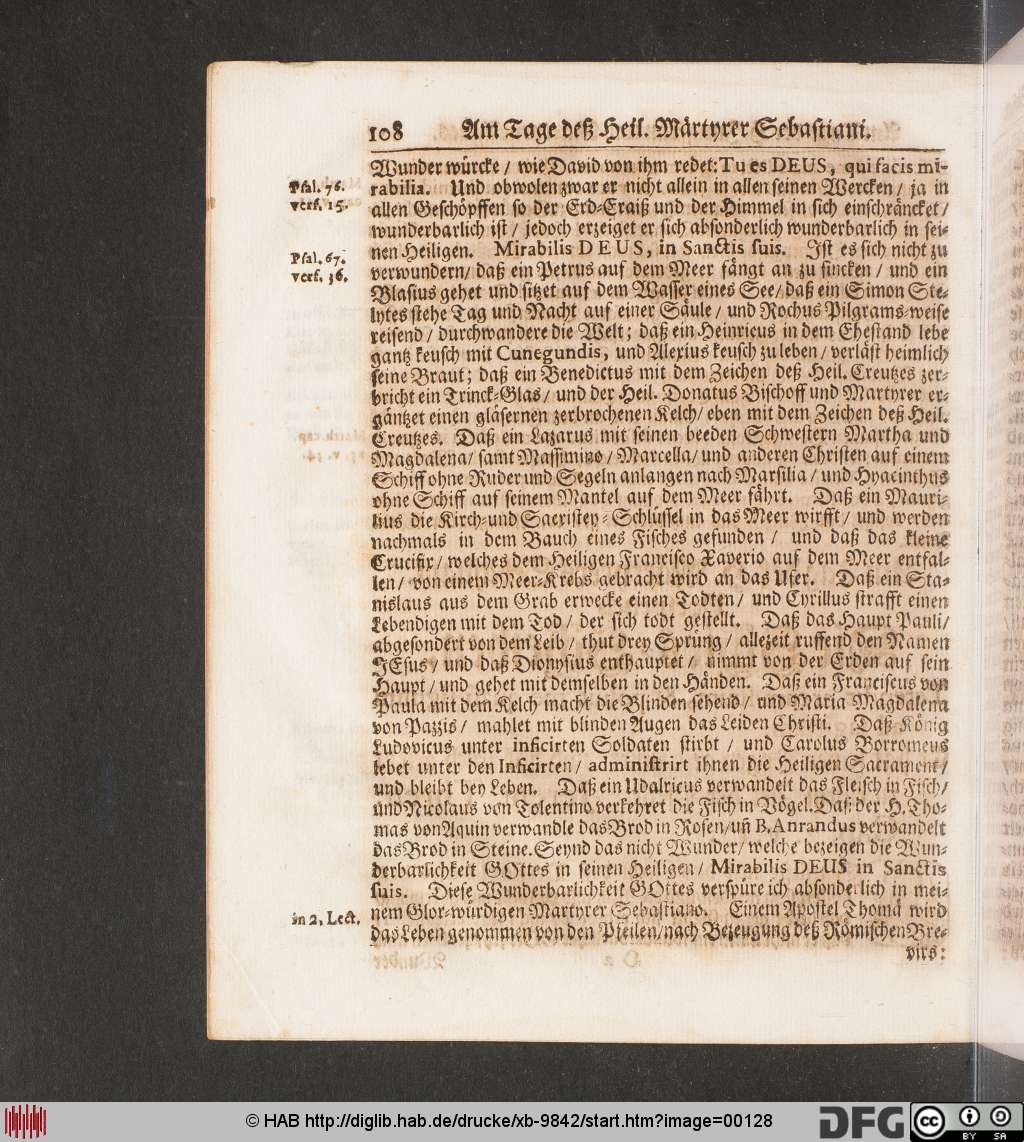 108 Am Tage deß Heil. Märtyrer Sebastiani.
Wunder würcke / wie David von ihm redet: Tu es DEUS, qui facis mi-
Psal. 76. rabilia. Und obwolen zwar er nicht allein in allen seinen Wercken / ja in
vers. 15. allen Geschöpffen so der Erd-Eraiß und der Himmel in sich einschräncket /
wunderbarlich ist / jedoch erzeiget er sich absonderlich wunderbarlich in sei-
Psal. 67. nen Heiligen. Mirabilis DEUS, in Sanctis suis. Ist es sich nicht zu
vers. 36. verwundern / daß ein Petrus auf dem Meer fängt an zu sincken / und ein
Blasius gehet und sitzet auf dem Wasser eines See / daß ein Simon Ste-
lytes stehe Tag und Nacht auf einer Säule / und Rochus Pilgrams-weise
reisend / durchwandere die Welt; daß ein Heinricus in dem Ehestand lebe
gantz keusch mit Cunegundis, und Alexius keusch zu leben / verläst heimlich
seine Braut; daß ein Benedictus mit dem Zeichen deß Heil. Creutzes zer-
bricht ein Trinck-Glas / und der Heil. Donatus Bischoff und Martyrer er-
gäntzet einen gläsernen zerbrochenen Kelch / eben mit dem Zeichen deß Heil.
Creutzes. Daß ein Lazarus mit seinen beeden Schwestern Martha und
Magdalena / samt Massimino / Marcella / und anderen Christen auf einem
Schiff ohne Ruder und Segeln anlangen nach Marsilia / und Hyacinthus
ohne Schiff auf seinem Mantel auf dem Meer fährt. Daß ein Mauri-
lius die Kirch- und Sacristey-Schlüssel in das Meer wirfft / und werden
nachmals in dem Bauch eines Fisches gefunden / und daß das kleine
Crucifix / welches dem Heiligen Francisco Xaverio auf dem Meer entfal-
len / von einem Meer-Krebs gebracht wird an das Ufer. Daß ein Sta-
nislaus aus dem Grab erwecke einen Todten / und Cyrillus strafft einen
Lebendigen mit dem Tod / der sich todt gestellt. Daß das Haupt Pauli /
abgesondert von dem Leib / thut drey Sprüng / allezeit ruffend den Namen
JEsus / und daß Dionysius enthauptet / nimmt von der Erden auf sein
Haupt / und gehet mit demselben in den Händen. Daß ein Franciscus von
Paula mit dem Kelch macht die Blinden sehend / und Maria Magdalena
von Pazzis / mahlet mit blinden Augen das Leiden Christi. Daß König
Ludovicus unter inficirten Soldaten stirbt / und Carolus Borromeus
lebet unter den Inficirten / administrirt ihnen die Heiligen Sacrament /
und bleibt bey Leben. Daß ein Udalricus verwandelt das Fleisch in Fisch /
und Nicolaus von Tolentino verkehret die Fisch in Vögel. Daß der H. Tho-
mas von Aquin verwandle das Brod in Rosen / uñ B. Anrandus verwandelt
das Brod in Steine. Seynd das nicht Wunder / welche bezeigen die Wun-
derbarlichkeit GOttes in seinen Heiligen / Mirabilis DEUS in Sanctis
suis. Diese Wunderbarlichkeit GOttes verspüre ich absonderlich in mei-
in 2. Lect. nem Glor-würdigen Martyrer Sebastiano. Einem Apostel Thomä wird
das Leben genommen von den Pfeilen / nach Bezeugung deß Römischen Bre-
virs:
© HAB http://diglib.hab.de/drucke/xb-9842/start.htm?image=00128
DFG
cc BY SA